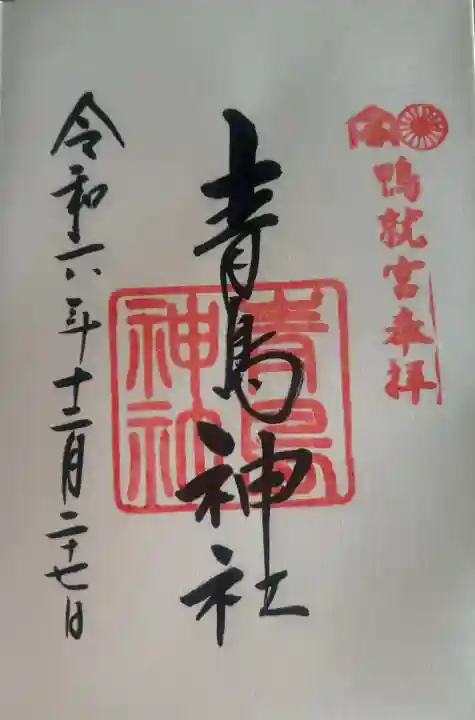 鴨就宮奉拝
青島神社
青島神社
令和六年十二月二十七日